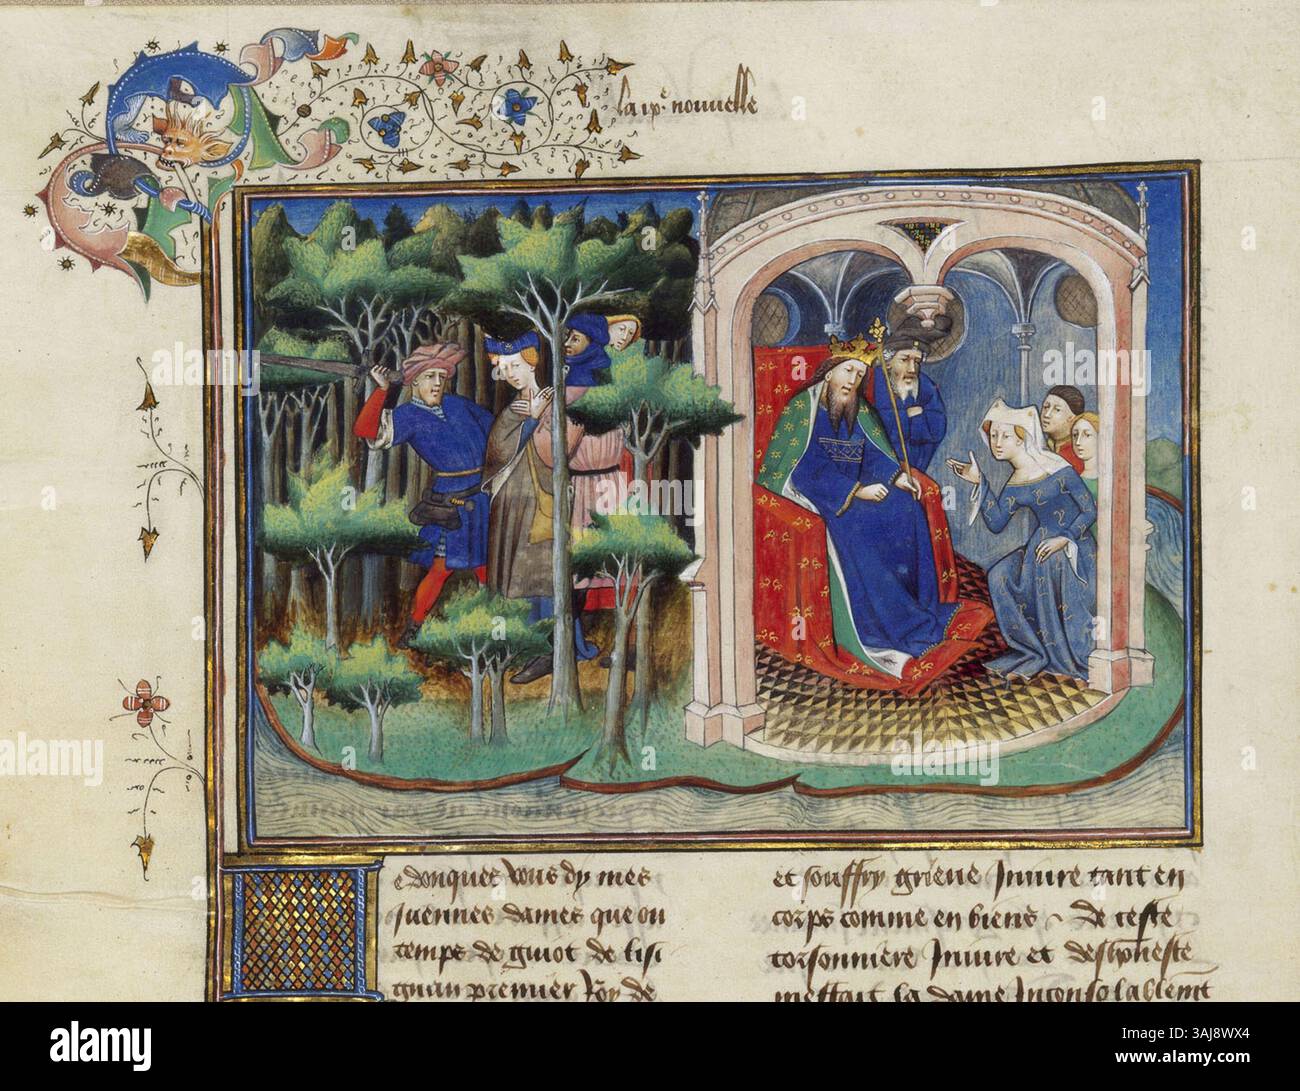 la ix^e nouvelle
e donques vous dy mes
Juennes dames que ou
temps de guiot de lisi
gnan premier Roy de
et souffry grieue Iniure tant en
corps comme en biens De ceste
corsonniere Iniure et deshoneste
meffait la dame Inconsolablemt
alamy
alamy
alamy
a
a
a
alamy
Image ID: 3AJ8WX4
www.alamy.com